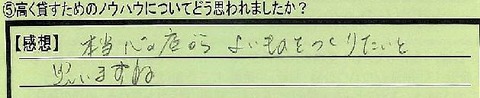 ⑤高く貸すためのノウハウについてどう思われましたか？
【感想】 本当 心の底から よいものをつくりたいと
思いますね